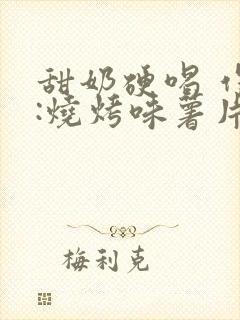 甜奶硬唱
:燒烤味薯片
梅利克